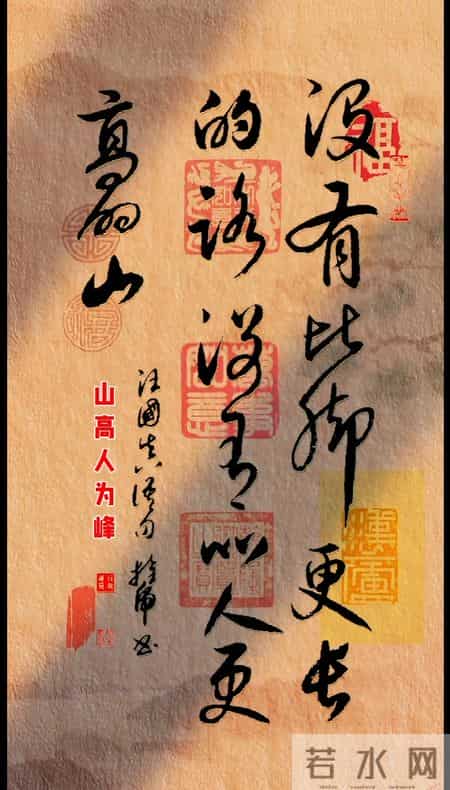 没有比脚更长
的路没有比人更
高的山
汪國真句书
山高人为峰
福
若水网